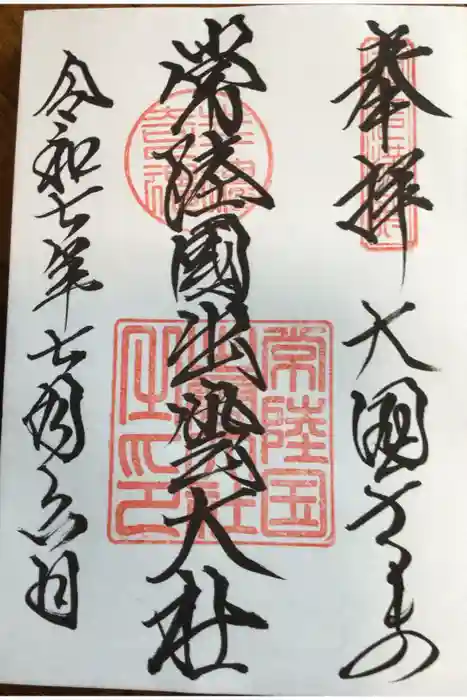 奉拝
大國
常陸國出雲大社
令和七年七月六日
常陸国
出雲大社
之印